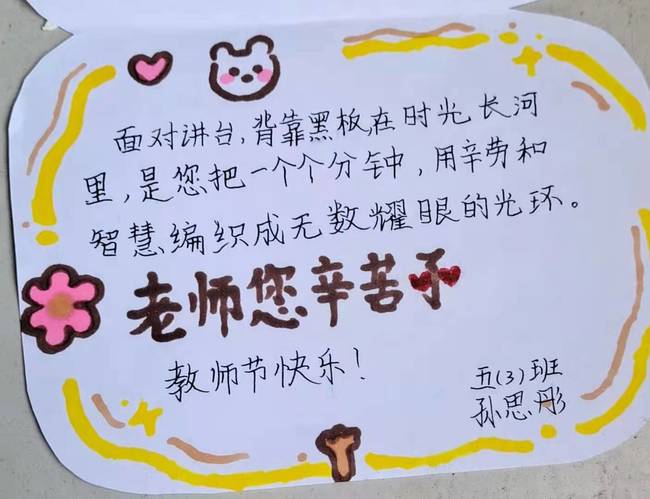 面对讲台，背靠黑板，在时光长河
里，是您把一个个分钟，用辛劳和
智慧编织成无数耀眼的光环。
老师您辛苦了
教师节快乐！
五(3)班
孙思彤